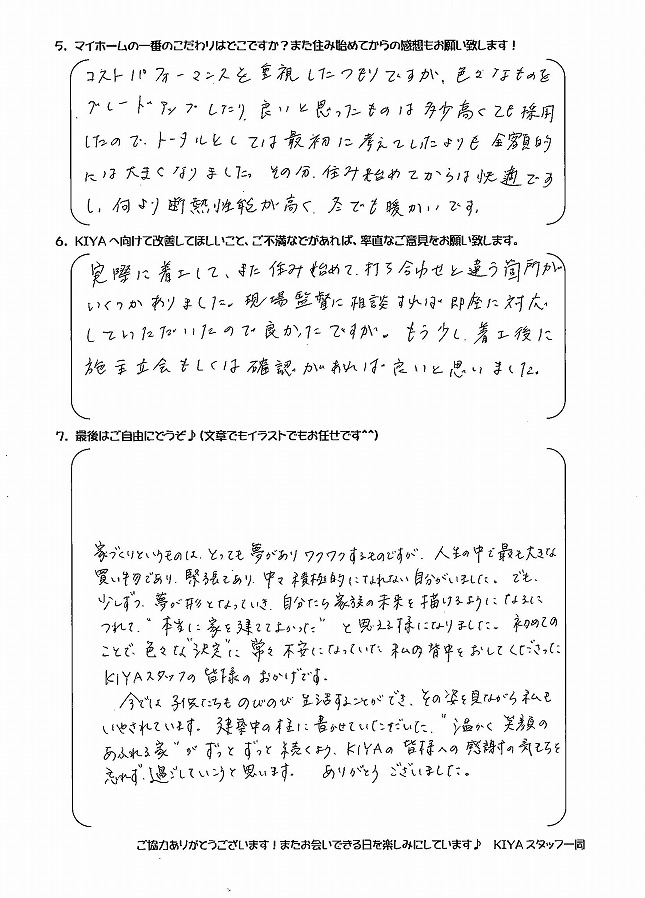 5. マイホームの一番のこだわりはどこですか？また住み始めてからの感想もお願い致します！
コストパフォーマンスを重視したつもりですが、色々なものを
グレードアップしたり、良いと思ったものは多少高くても採用
したので、トータルとしては最初に考えてしたよりも金額的
には大きくなりました。その分、住み始めてからは快適です
し、何より断熱性能が高く、冬でも暖かいです。
6. KIYAへ向けて改善してほしいこと、ご不満などがあれば、率直なご意見をお願い致します。
実際に着工して、また住み始めて、打ち合わせと違う箇所が
いくつかありました。現場監督に相談すれば即座に対応
していただいたので良かったですが。もう少し、着工後に
施主立会もしくは確認があれば良いと思いました。
7. 最後はご自由にどうぞ♪(文章でもイラストでもお任せです^^)
家づくりというものは、とっても夢がありワクワクするものですが、人生の中で最も大きな
買い物であり、緊張であり、中々積極的になれない自分がいました。でも、
少しずつ、夢が形となっていき、自分たち家族の未来を描けるようになるに
つれて、"本当に家を建ててよかった" と思える様になりました。初めての
ことで、色々な"決定"に常々不安になっていた私の背中をおしてくださった
KIYAスタッフの皆様のおかげです。
今では子供たちものびのび生活することができ、その姿を見ながら私も
いやされています。建築中の柱に書かせていただいた、"温かく笑顔の
あふれる家"がずっとずっと続くよう、KIYAの皆様への感謝の気もちを
忘れず、過ごしていこうと思います。 ありがとうございました。
ご協力ありがとうございます！またお会いできる日を楽しみにしています♪ KIYAスタッフ一同